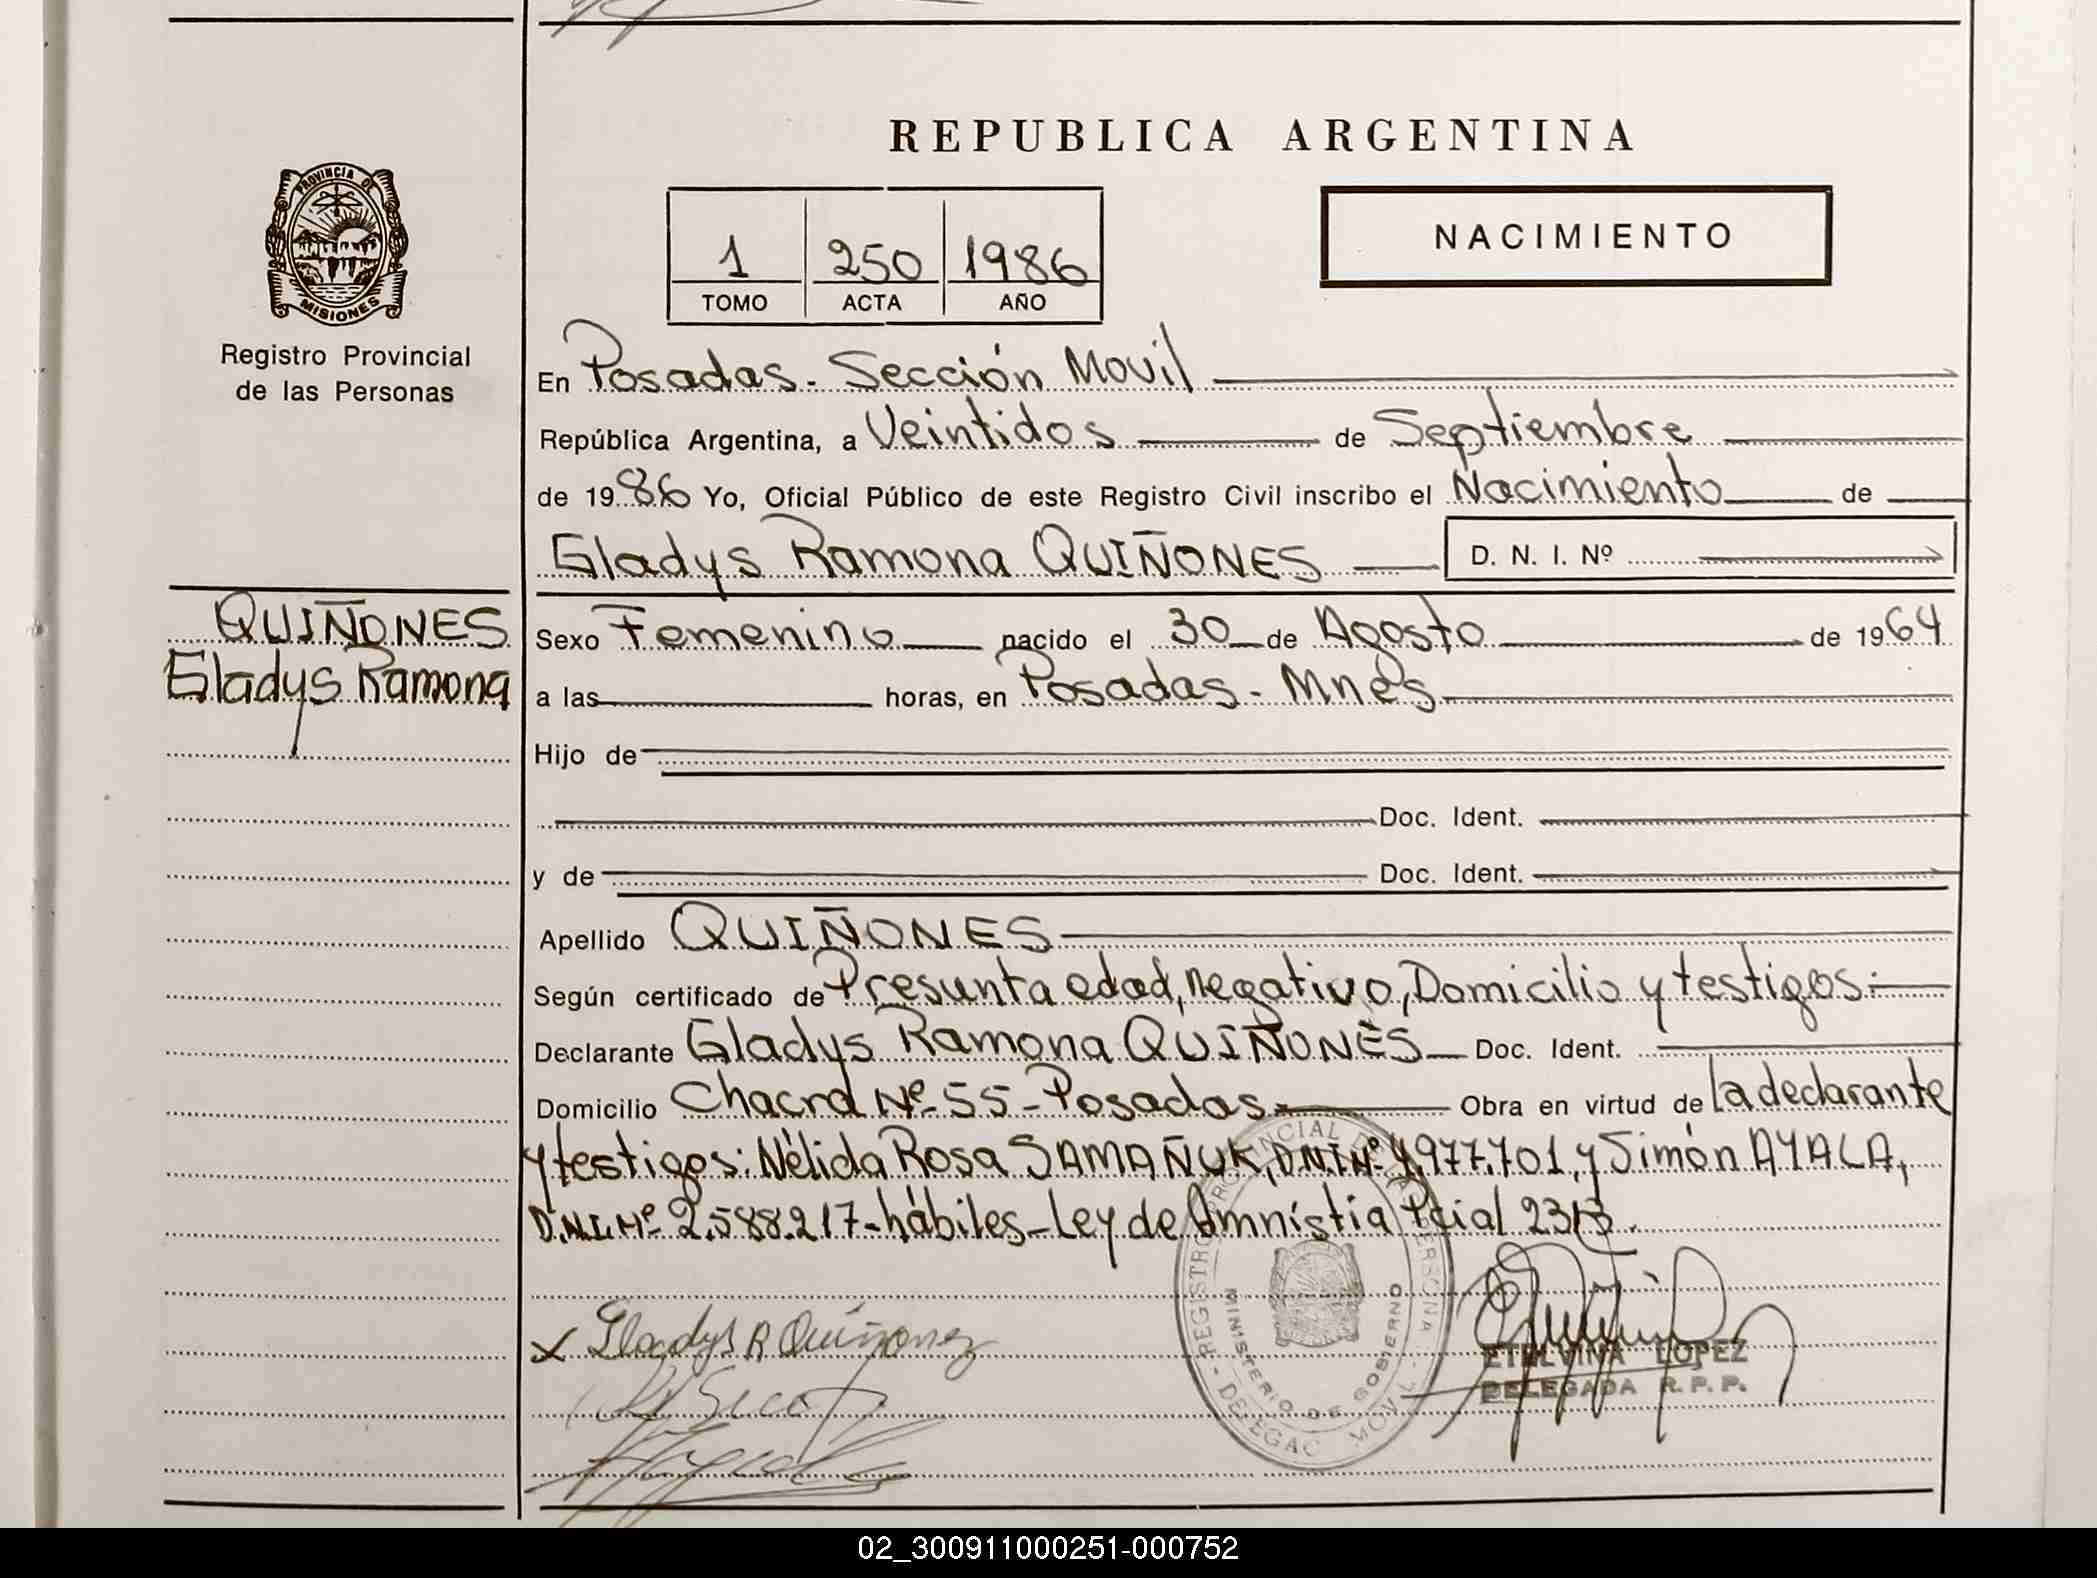 REPUBLICA ARGENTINA
PROVINCIA DE
MISIONES
Registro Provincial
de las Personas
1 250 1986
TOMO ACTA AÑO
NACIMIENTO
En Posadas - Sección Movil
República Argentina, a Veintidos de Septiembre
de 1986 Yo, Oficial Público de este Registro Civil inscribo el Nacimiento de
Gladys Ramona QUIÑONES D. N. I. Nº
QUIÑONES
Gladys Ramona
Sexo Femenino nacido el 30 de Agosto de 1964
a las horas, en Posadas - Mnes
Hijo de
Doc. Ident.
y de Doc. Ident.
Apellido QUIÑONES
Según certificado de Presunta edad, negativo, Domicilio y testigos:
Declarante Gladys Ramona QUIÑONES Doc. Ident.
Domicilio Chacra Nº 55 - Posadas Obra en virtud de la declarante
y testigos: Nélida Rosa SAMAÑUK, DNI Nº .977.701, y Simón AYALA,
D.N.I. Nº 2.588.217 - hábiles - Ley de Amnistia Pcial 2313.
Gladys R Quiñonez
REGISTRO PROVINCIAL DE LAS PERSONAS
MINISTERIO DE GOBIERNO
DELEGAC MOVIL
ETELVINA LOPEZ
DELEGADA R. P. P.
02_300911000251-000752